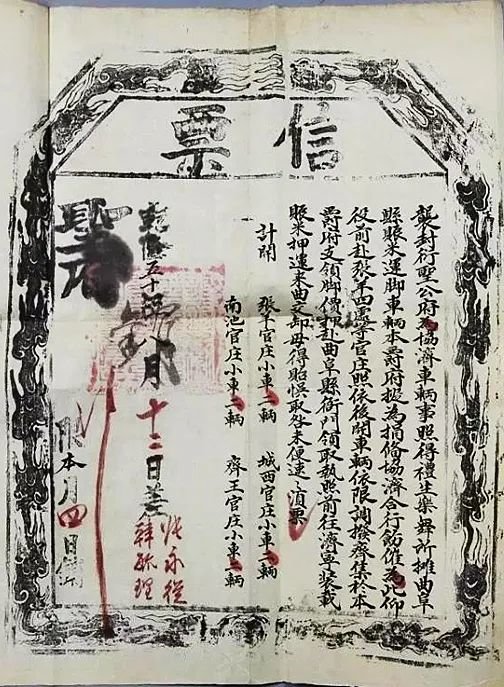 信票
襲封衍聖公府為協濟車輛事照得禮生樂舞所攤曲阜
縣賑米運脚車輛本爵府擬為捐備協濟合行飭催為此仰
役前赴張羊四處等官庄照依後開車輛依限調撥齊集於本
爵府支領脚價即赴曲阜縣衙门領取執照前往濟寧裝載
賑米押運来曲交卸毋得貽悞取咎未便速〻須票
計開 張羊官庄小車二輛 城西官庄小車二輛
南池官庄小車二輛 齊王官庄小車二輛
乾隆五十 月十二日差 張永從
韓毓理
限本月四日銷